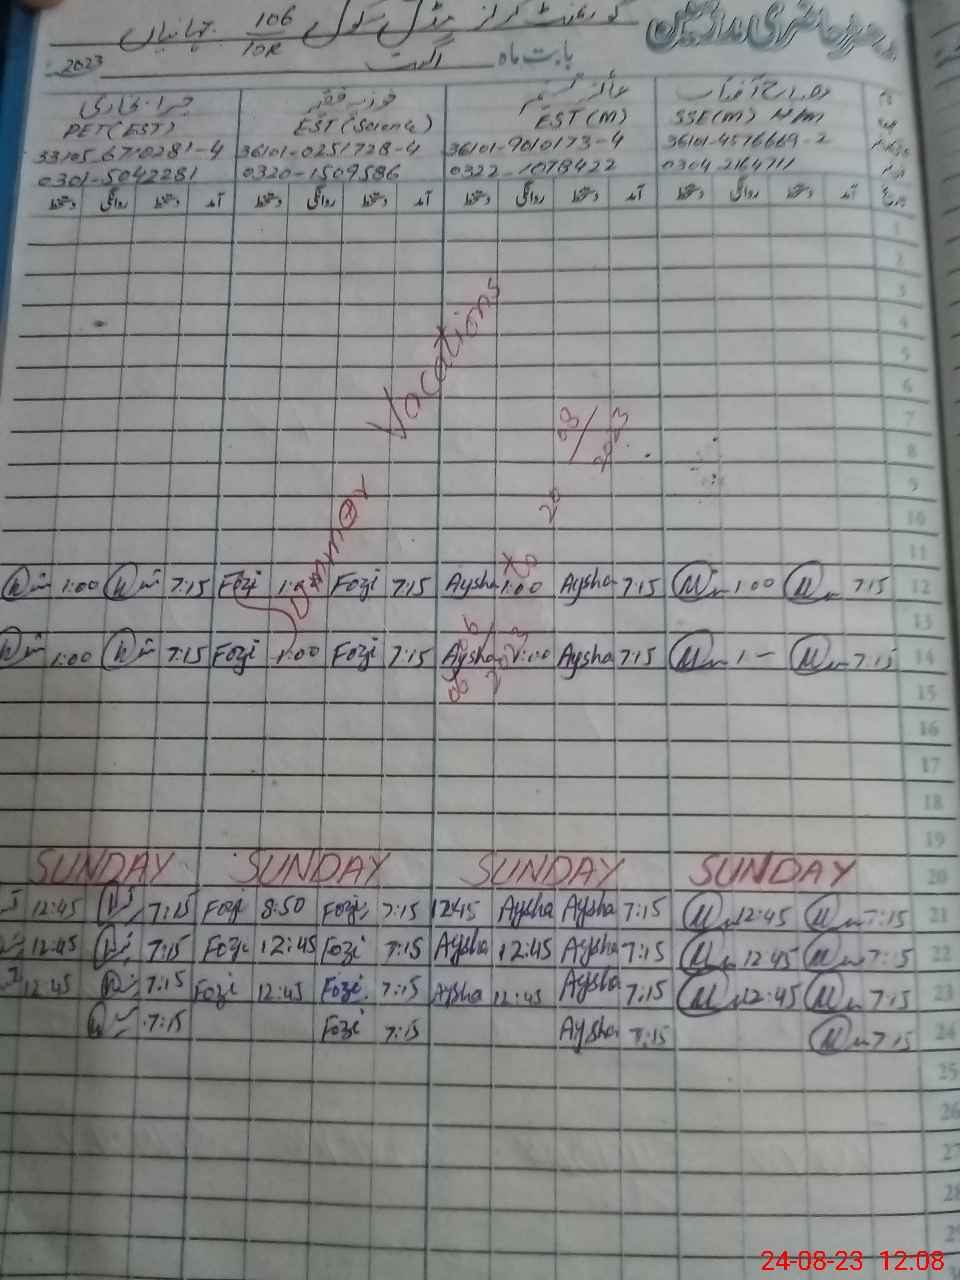 حاضری ملازمین
گورنمنٹ گرلز مڈل سکول 106/10R جہانیاں
بابت ماہ اگست 2023
PET (EST) EST (Science) EST (M) SSE (M) H/M
33105-6710281-4 36101-0251728-4 36101-9010173-4 36101-4516669-2
0301-5042281 0320-1509586 0322-1078422 0304 2164711
دستخط روانگی دستخط آمد دستخط روانگی دستخط آمد دستخط روانگی دستخط آمد دستخط روانگی دستخط آمد تاریخ
1
2
3
4
5
6
7
8
9
10
11
Summer Vacations
06/6/2023 to 20/08/2023
1:00 7:15 Fozi 1:00 Fozi 7:15 Aysha 1:00 Aysha 7:15 1:00 7:15 12
13
1:00 7:15 Fozi 1:00 Fozi 7:15 Aysha 1:00 Aysha 7:15 1:– 7:15 14
15
16
17
18
19
SUNDAY SUNDAY SUNDAY SUNDAY 20
12:45 7:15 Fozi 8:50 Fozi 7:15 12:45 Aysha Aysha 7:15 12:45 7:15 21
12:45 7:15 Fozi 12:45 Fozi 7:15 Aysha 12:45 Aysha 7:15 12:45 7:15 22
12:45 7:15 Fozi 12:45 Fozi 7:15 Aysha 12:45 Aysha 7:15 12:45 7:15 23
7:15 Fozi 7:15 Aysha 7:15 7:15 24
25
26
27
28
29
24-08-23 12:08